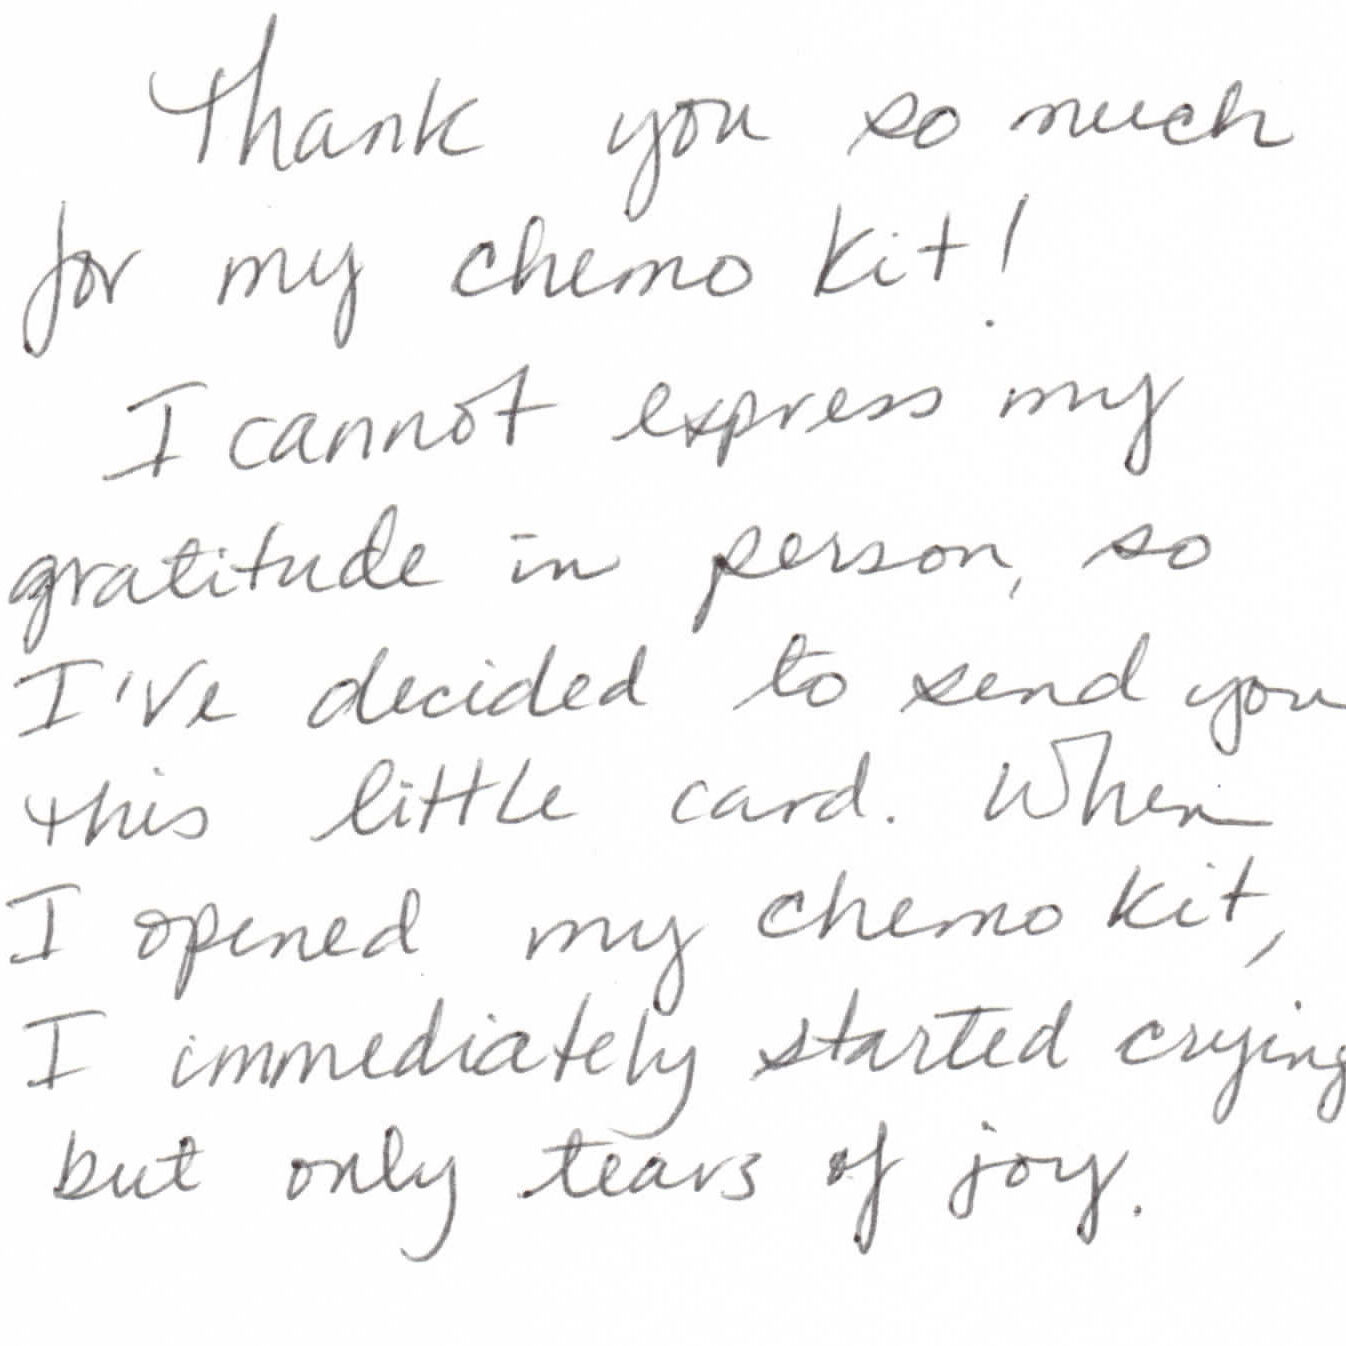 Thank you so much
for my chemo kit!
I cannot express my
gratitude in person, so
I've decided to send you
this little card. When
I opened my chemo kit,
I immediately started crying
but only tears of joy.